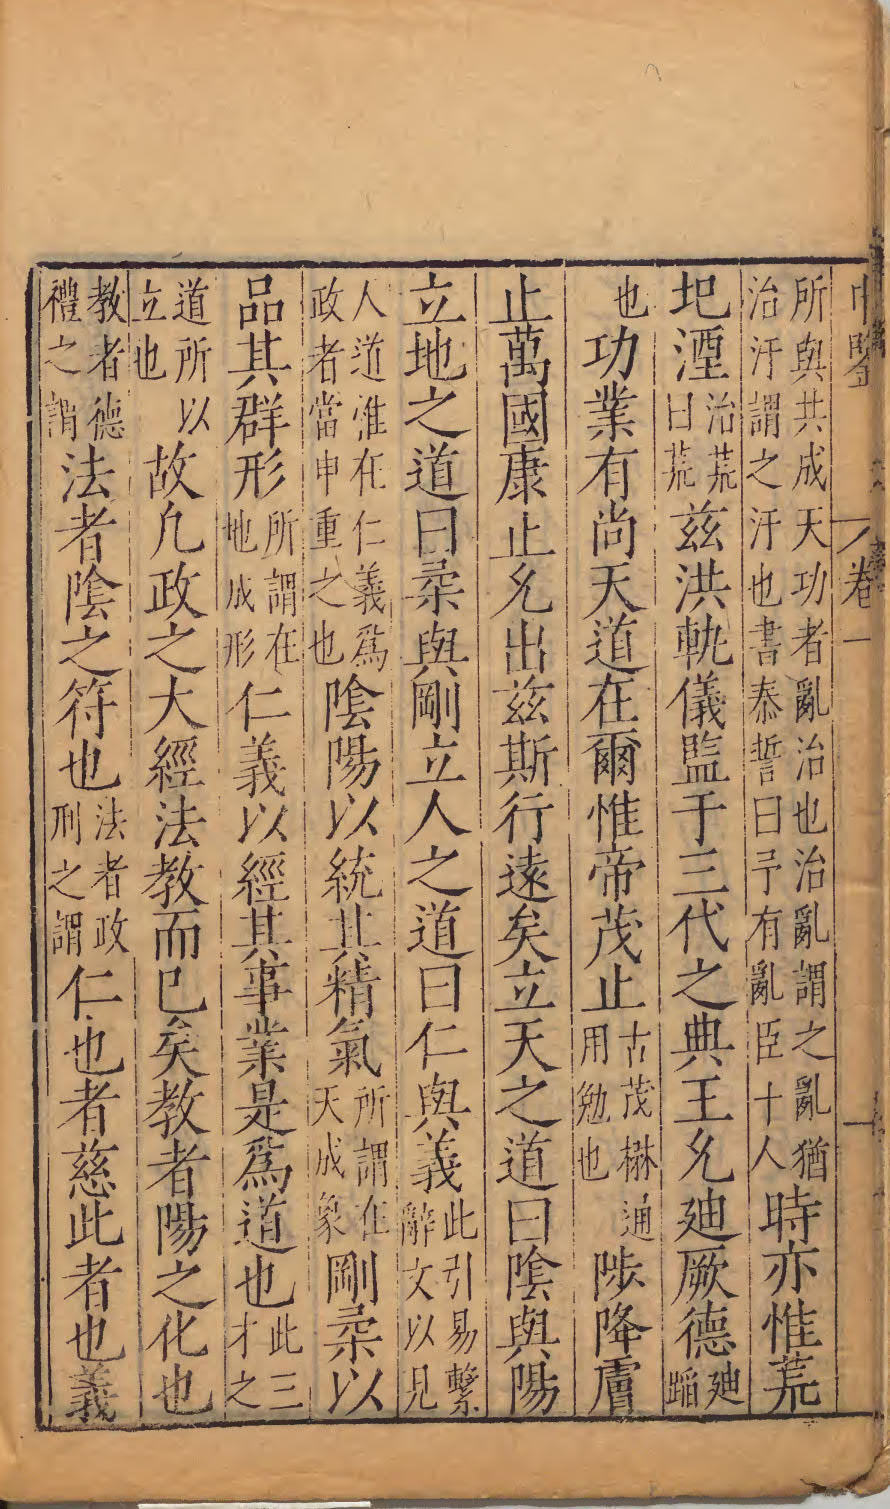 卷一
一
所與共成天功者亂治也治亂謂之亂猶治汙謂之汙也書泰誓曰予有亂臣十人時亦惟荒
圮湮治荒曰荒茲洪軌儀監于三代之典王允迪厥德迪蹈
也功業有尚天道在爾惟帝茂止古茂楙通用勉也陟降膚
止萬國康止允出茲斯行遠矣立天之道曰陰與陽
立地之道曰柔與剛立人之道曰仁與義此引易繫辭文以見
人道惟在仁義爲政者當申重之也陰陽以統其精氣所謂在天成象剛柔以
品其群形所謂在地成形仁義以經其事業是爲道也此三才之
道所以立也故凡政之大經法教而已矣教者陽之化也
教者德禮之謂法者陰之符也法者政刑之謂仁也者慈此者也義